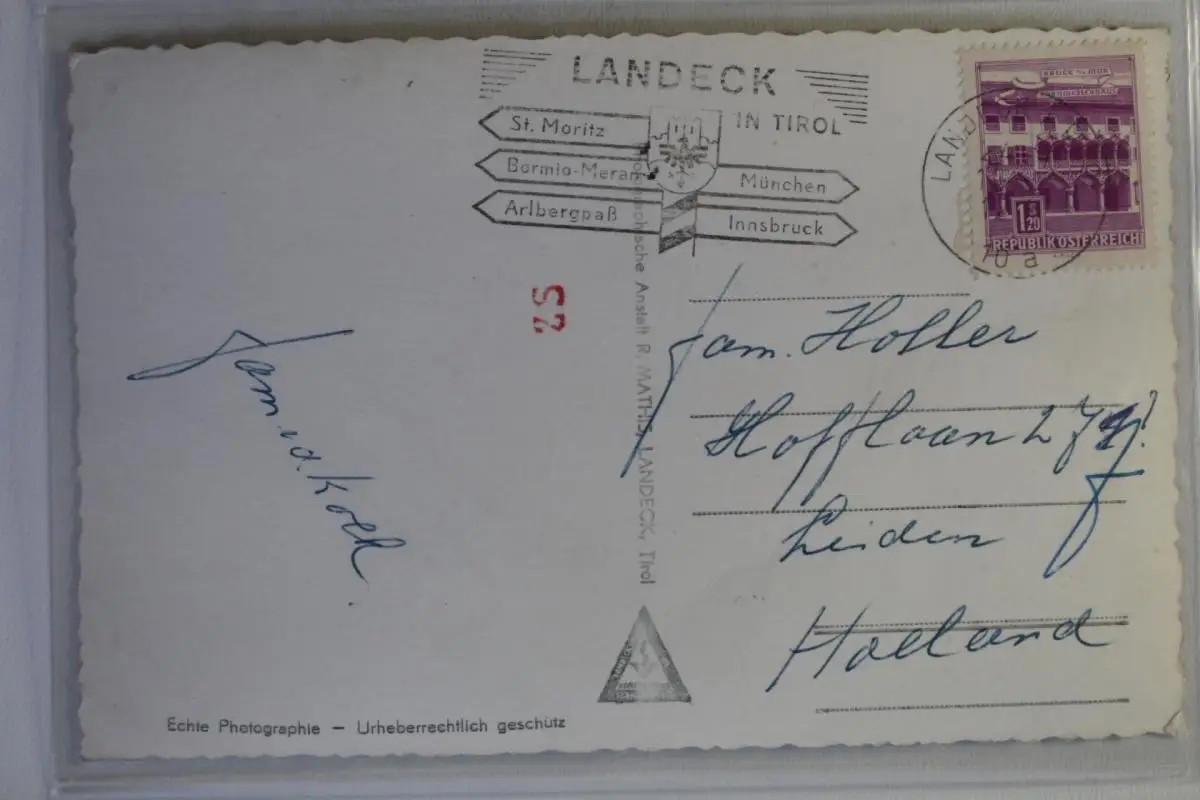 LANDECK
IN TIROL
St. Moritz
Bormio-Meran
Arlbergpaß
München
Innsbruck
BRUCK A/D MUR
KORNMESSERHAUS
1 S 20
REPUBLIK ÖSTERREICH
LAND
10 a
2S
Fam. Holler
Hofflaan 27
Leiden
Holland
Fam. v.d. Kolk.
Photographische Anstalt R. MATHIS, LANDECK, Tirol
Echte Photographie – Urheberrechtlich geschütz